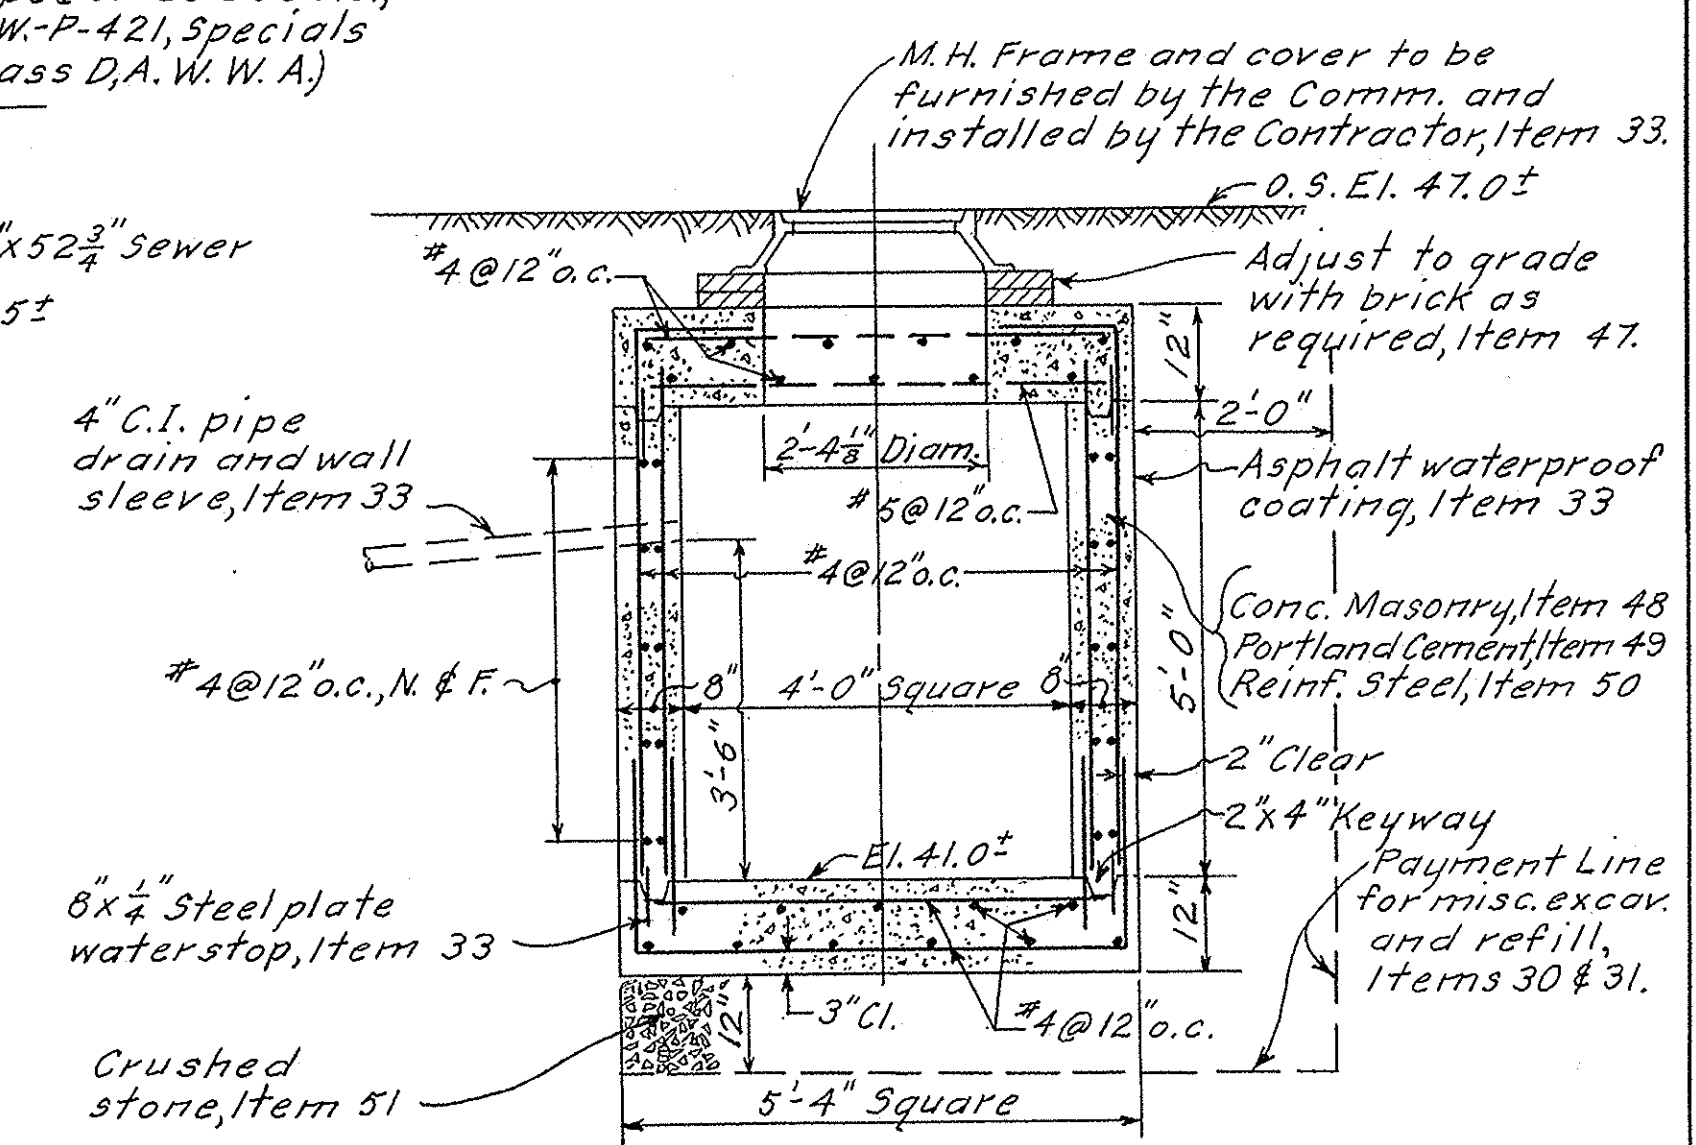 W.-P-421, Specials
ass D, A. W. W. A.)
M.H. Frame and cover to be
furnished by the Comm. and
installed by the Contractor, Item 33.
O.S. El. 47.0±
"x 52 3/4" Sewer
5±
#4 @ 12" o.c.
Adjust to grade
with brick as
required, Item 47.
12"
2'-0"
4" C.I. pipe
drain and wall
sleeve, Item 33
2'-4 1/8" Diam.
#5 @ 12" o.c.
Asphalt waterproof
coating, Item 33
#4 @ 12" o.c.
Conc. Masonry, Item 48
Portland Cement, Item 49
Reinf. Steel, Item 50
#4 @ 12" o.c., N. & F.
8"
4'-0" Square
8"
5'-0"
3'-6"
2" Clear
2" x 4" Keyway
El. 41.0±
Payment Line
for misc. excav.
and refill,
Items 30 & 31.
8" x 1/4" Steel plate
waterstop, Item 33
12"
12"
3" Cl.
#4 @ 12" o.c.
Crushed
stone, Item 51
5'-4" Square